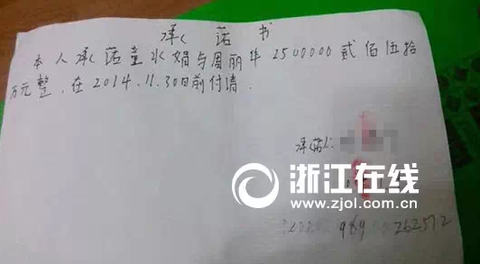 承诺书
本人承诺童水娟与周丽华2500000贰佰伍拾
万元整.在2014.11.30日前付请.
承诺人:
浙江在线
www.zjol.com.cn
262512